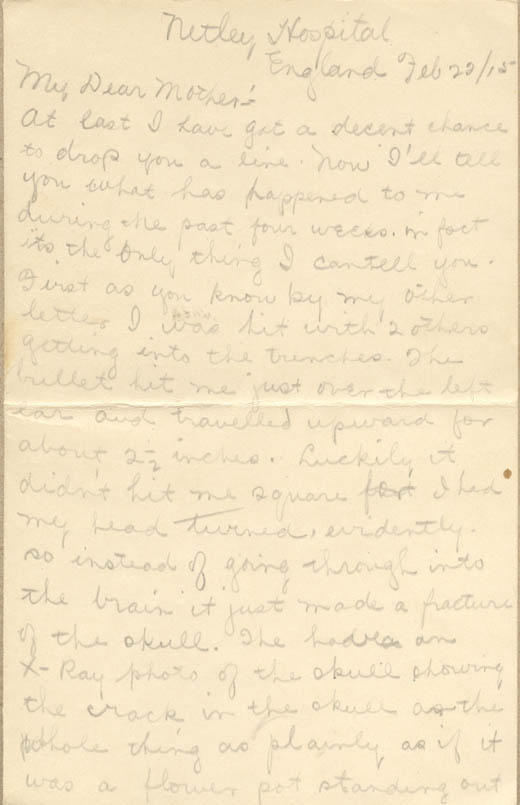 Netley Hospital
England Feb 22/15
My Dear Mother:-
At last I have got a decent chance
to drop you a line. Now I'll tell
you what has happened to me
during the past four weeks. in fact
its the only thing I can tell you.
First as you know by my other
letter I was hit with 2 others
getting into the trenches. The
bullet hit me just over the left
ear and travelled upward for
about 2½ inches. Luckily it
didn't hit me square I had
my head turned, evidently.
so instead of going through into
the brain it just made a fracture
of the skull. The had an
X-Ray photo of the skull showing
the crack in the skull the
whole thing as plainly as if it
was a flower pot standing out